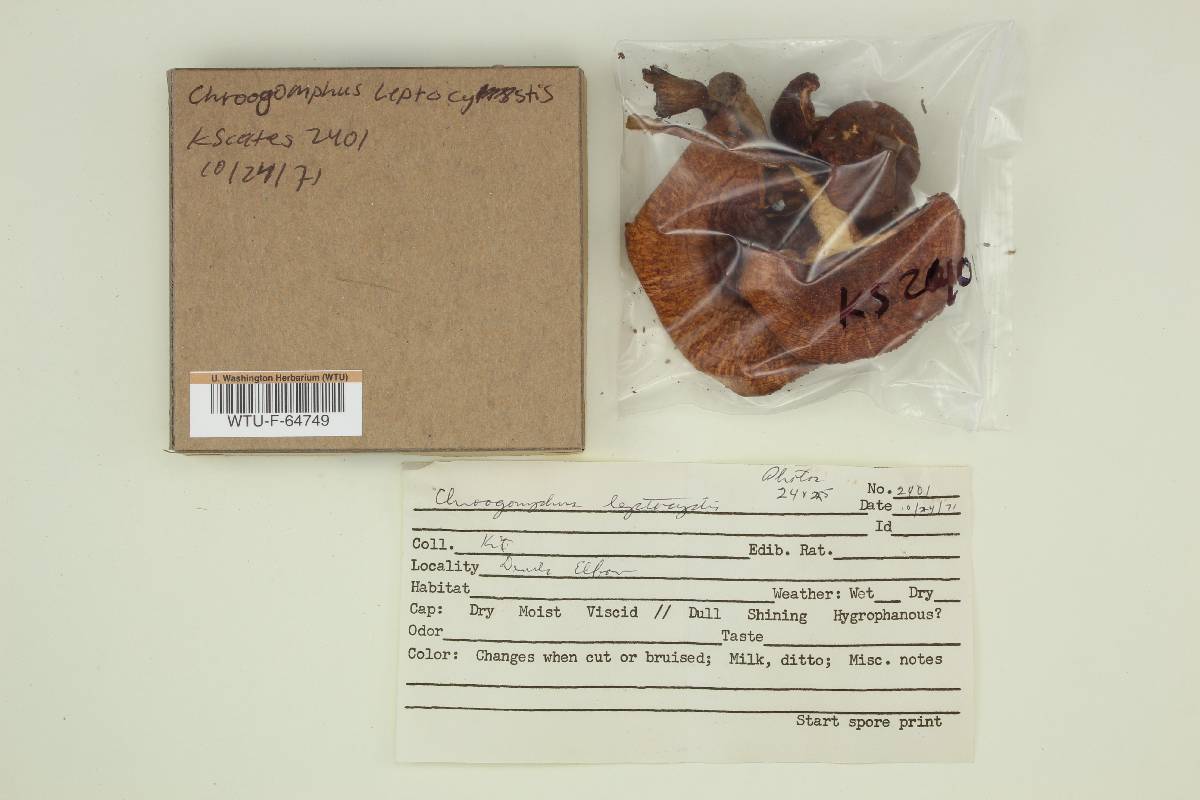 Chroogomphus leptocystis
KScates 2401
10/24/71
U. Washington Herbarium (WTU)
WTU-F-64749
KS 2401
Photos
24 + 25
No. 2401
Chroogomphus leptocystis
Date 10/24/71
Id
Coll. Kit
Edib. Rat.
Locality Devils Elbow
Habitat Weather: Wet Dry
Cap: Dry Moist Viscid // Dull Shining Hygrophanous?
Odor Taste
Color: Changes when cut or bruised; Milk, ditto; Misc. notes
Start spore print